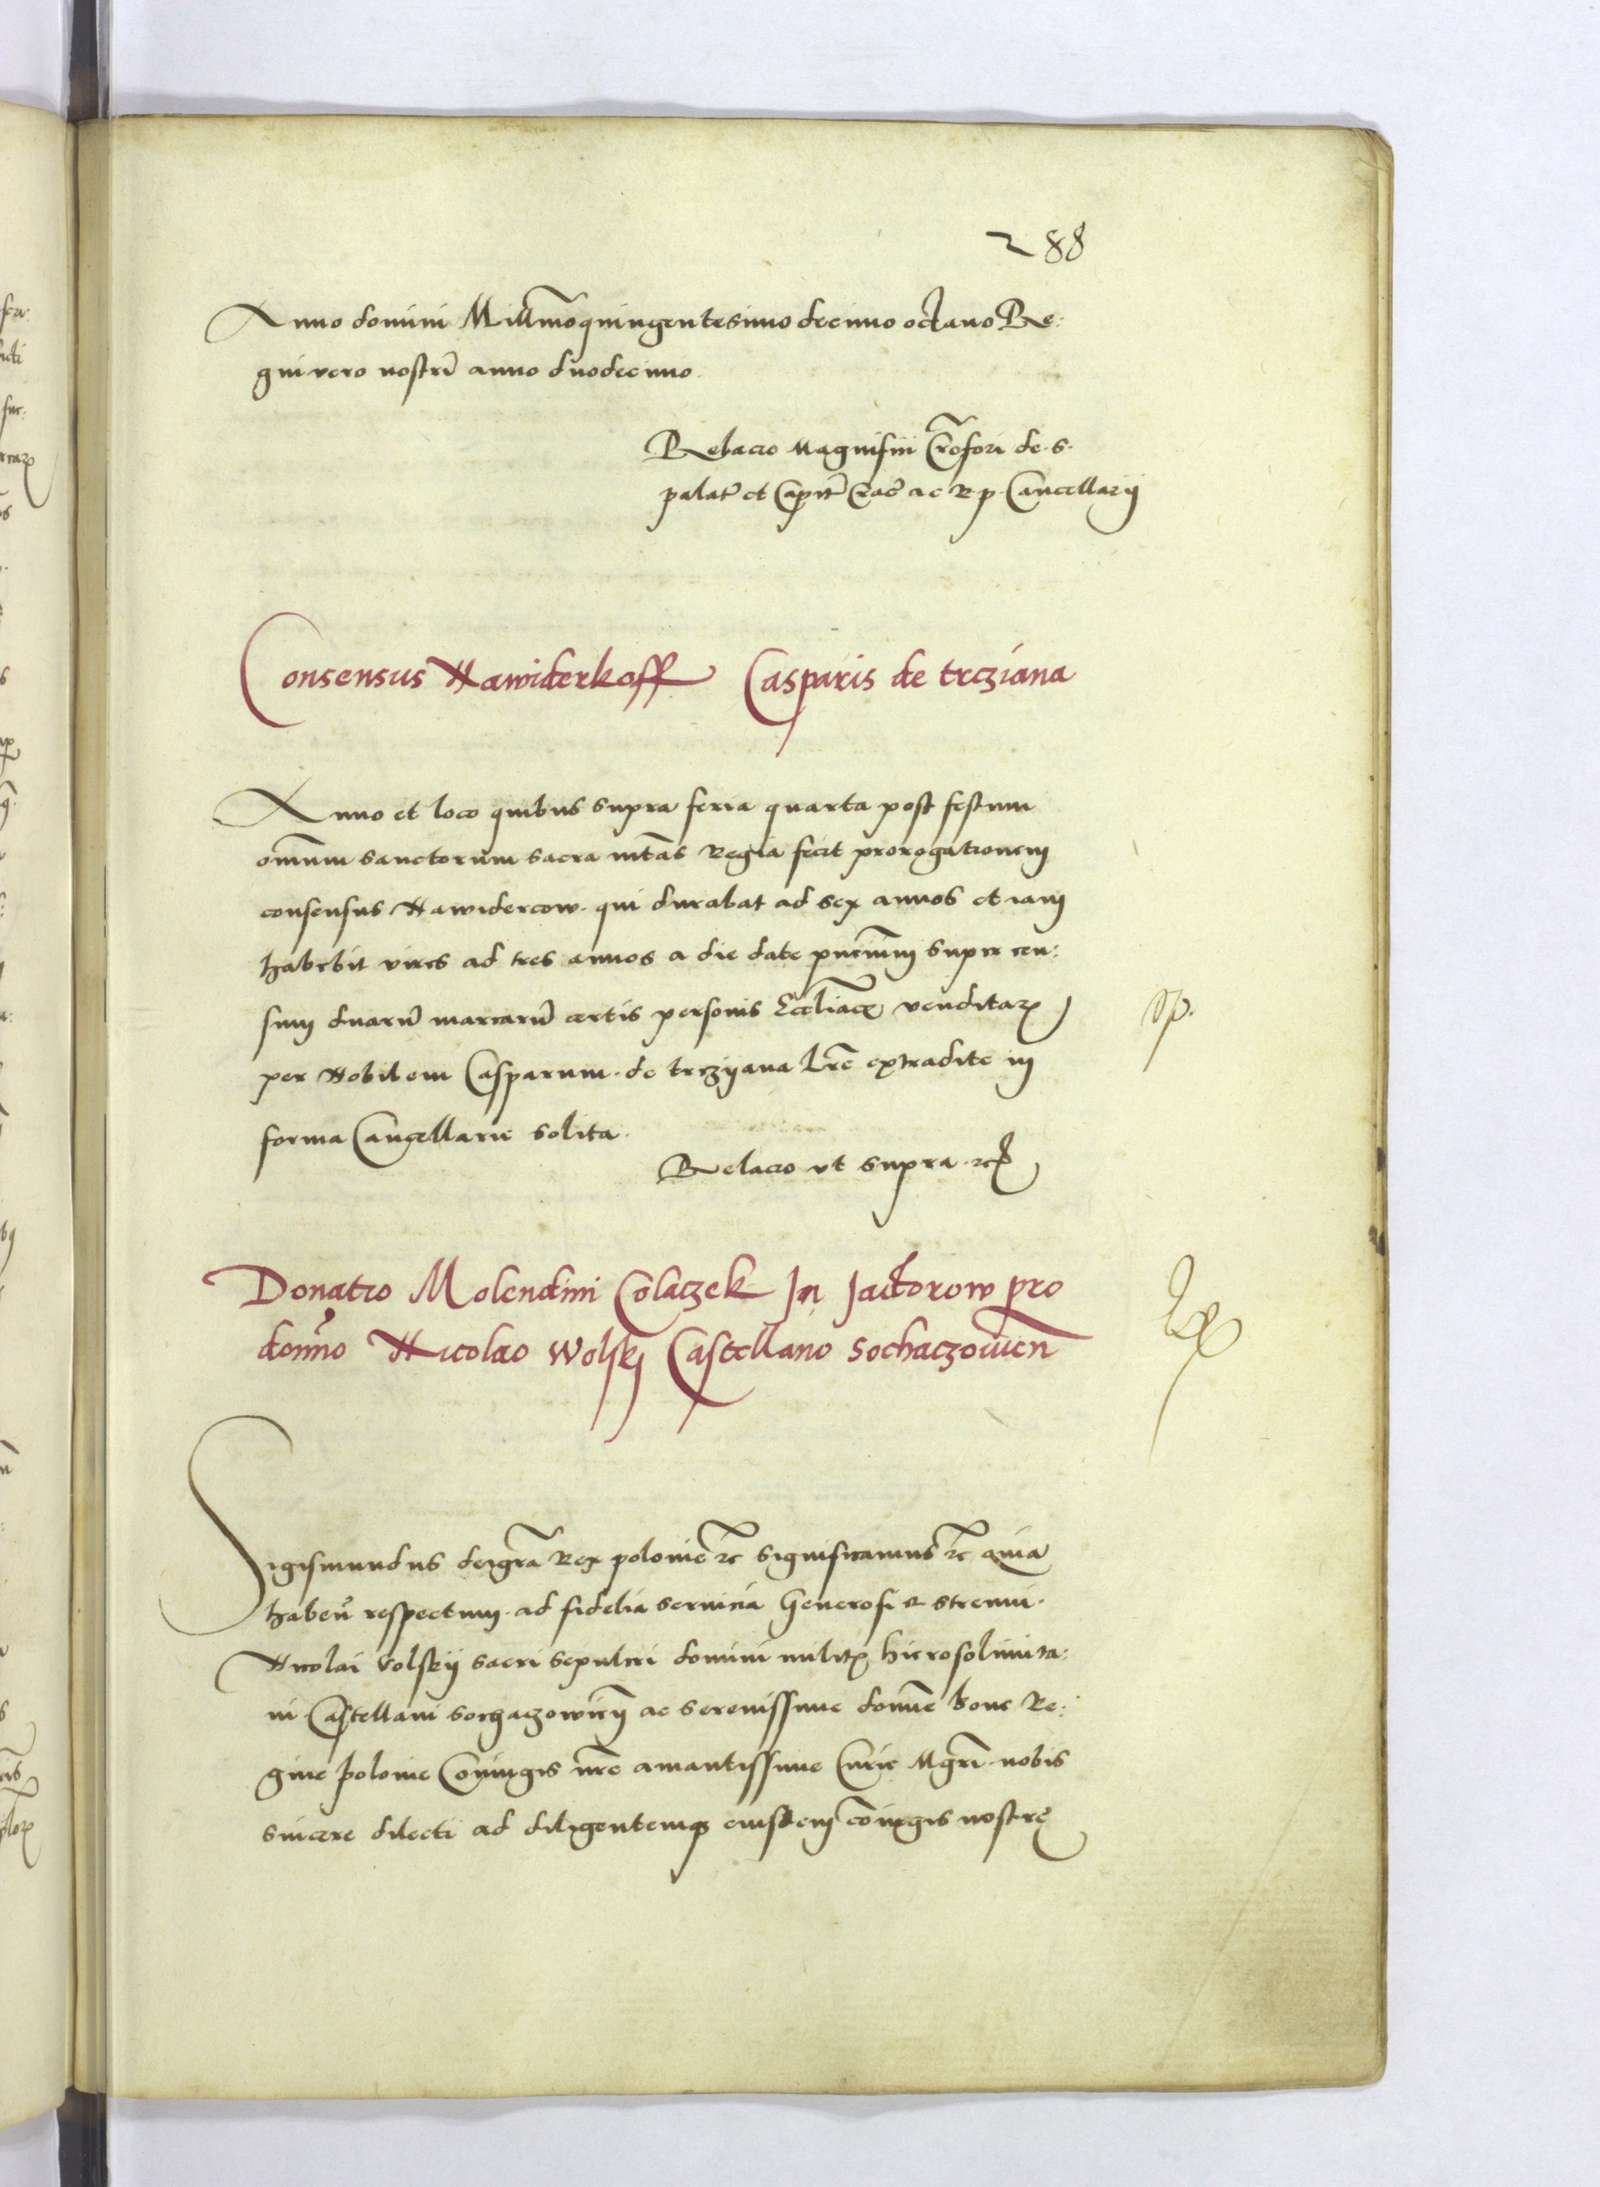 288
Anno domini Millm̃o quingentesimo decimo octavo Re:
gni vero nostri anno duodecimo.
Relacio Magnifici Cr̃ofori de. S.
palat̃ et Capit̃ Crac̃ ac R p Cancellarij
Consensus Nawiderkoff Casparis de trcziana
Anno et loco quibus supra feria quarta post festum
om̃ium sanctorum sacra mt̃as Regia fecit prorogationem
consensus Nawidercow. qui durabat ad sex annos et iam
habebit vires ad tres annos a die date pn̄cium super cen:
sum duarũ marcarũ certis personis Ecc̃liace venditaꝝ
per Nobilem Casparum. de trczyana Lr̃e extradite in
forma Cancellarie solita.
Relacio vt supra. ꝛcʒ
Donatio Molendini Colaczek In Jactorow pro
dom̃o Nicolao Wolskj Castellano Sochaczowien̄
Sigismundus dei gr̃a Rex polonie ꝛc̃ significamus ꝛc̃ quia
haben̄ respectum. ad fidelia servicia Generosi & strenui.
Nicolai Volskij sacri sepulcri domini militis hierosolimita:
ni Castellani sochaczowien̄ ac serenissime domĩne bone Re:
gine polonie Coniugis nr̃e amantissime Curie Mgr̃i. nobis
sincere dilecti ad diligentemqȝ eiusdem cõiugis nostrę